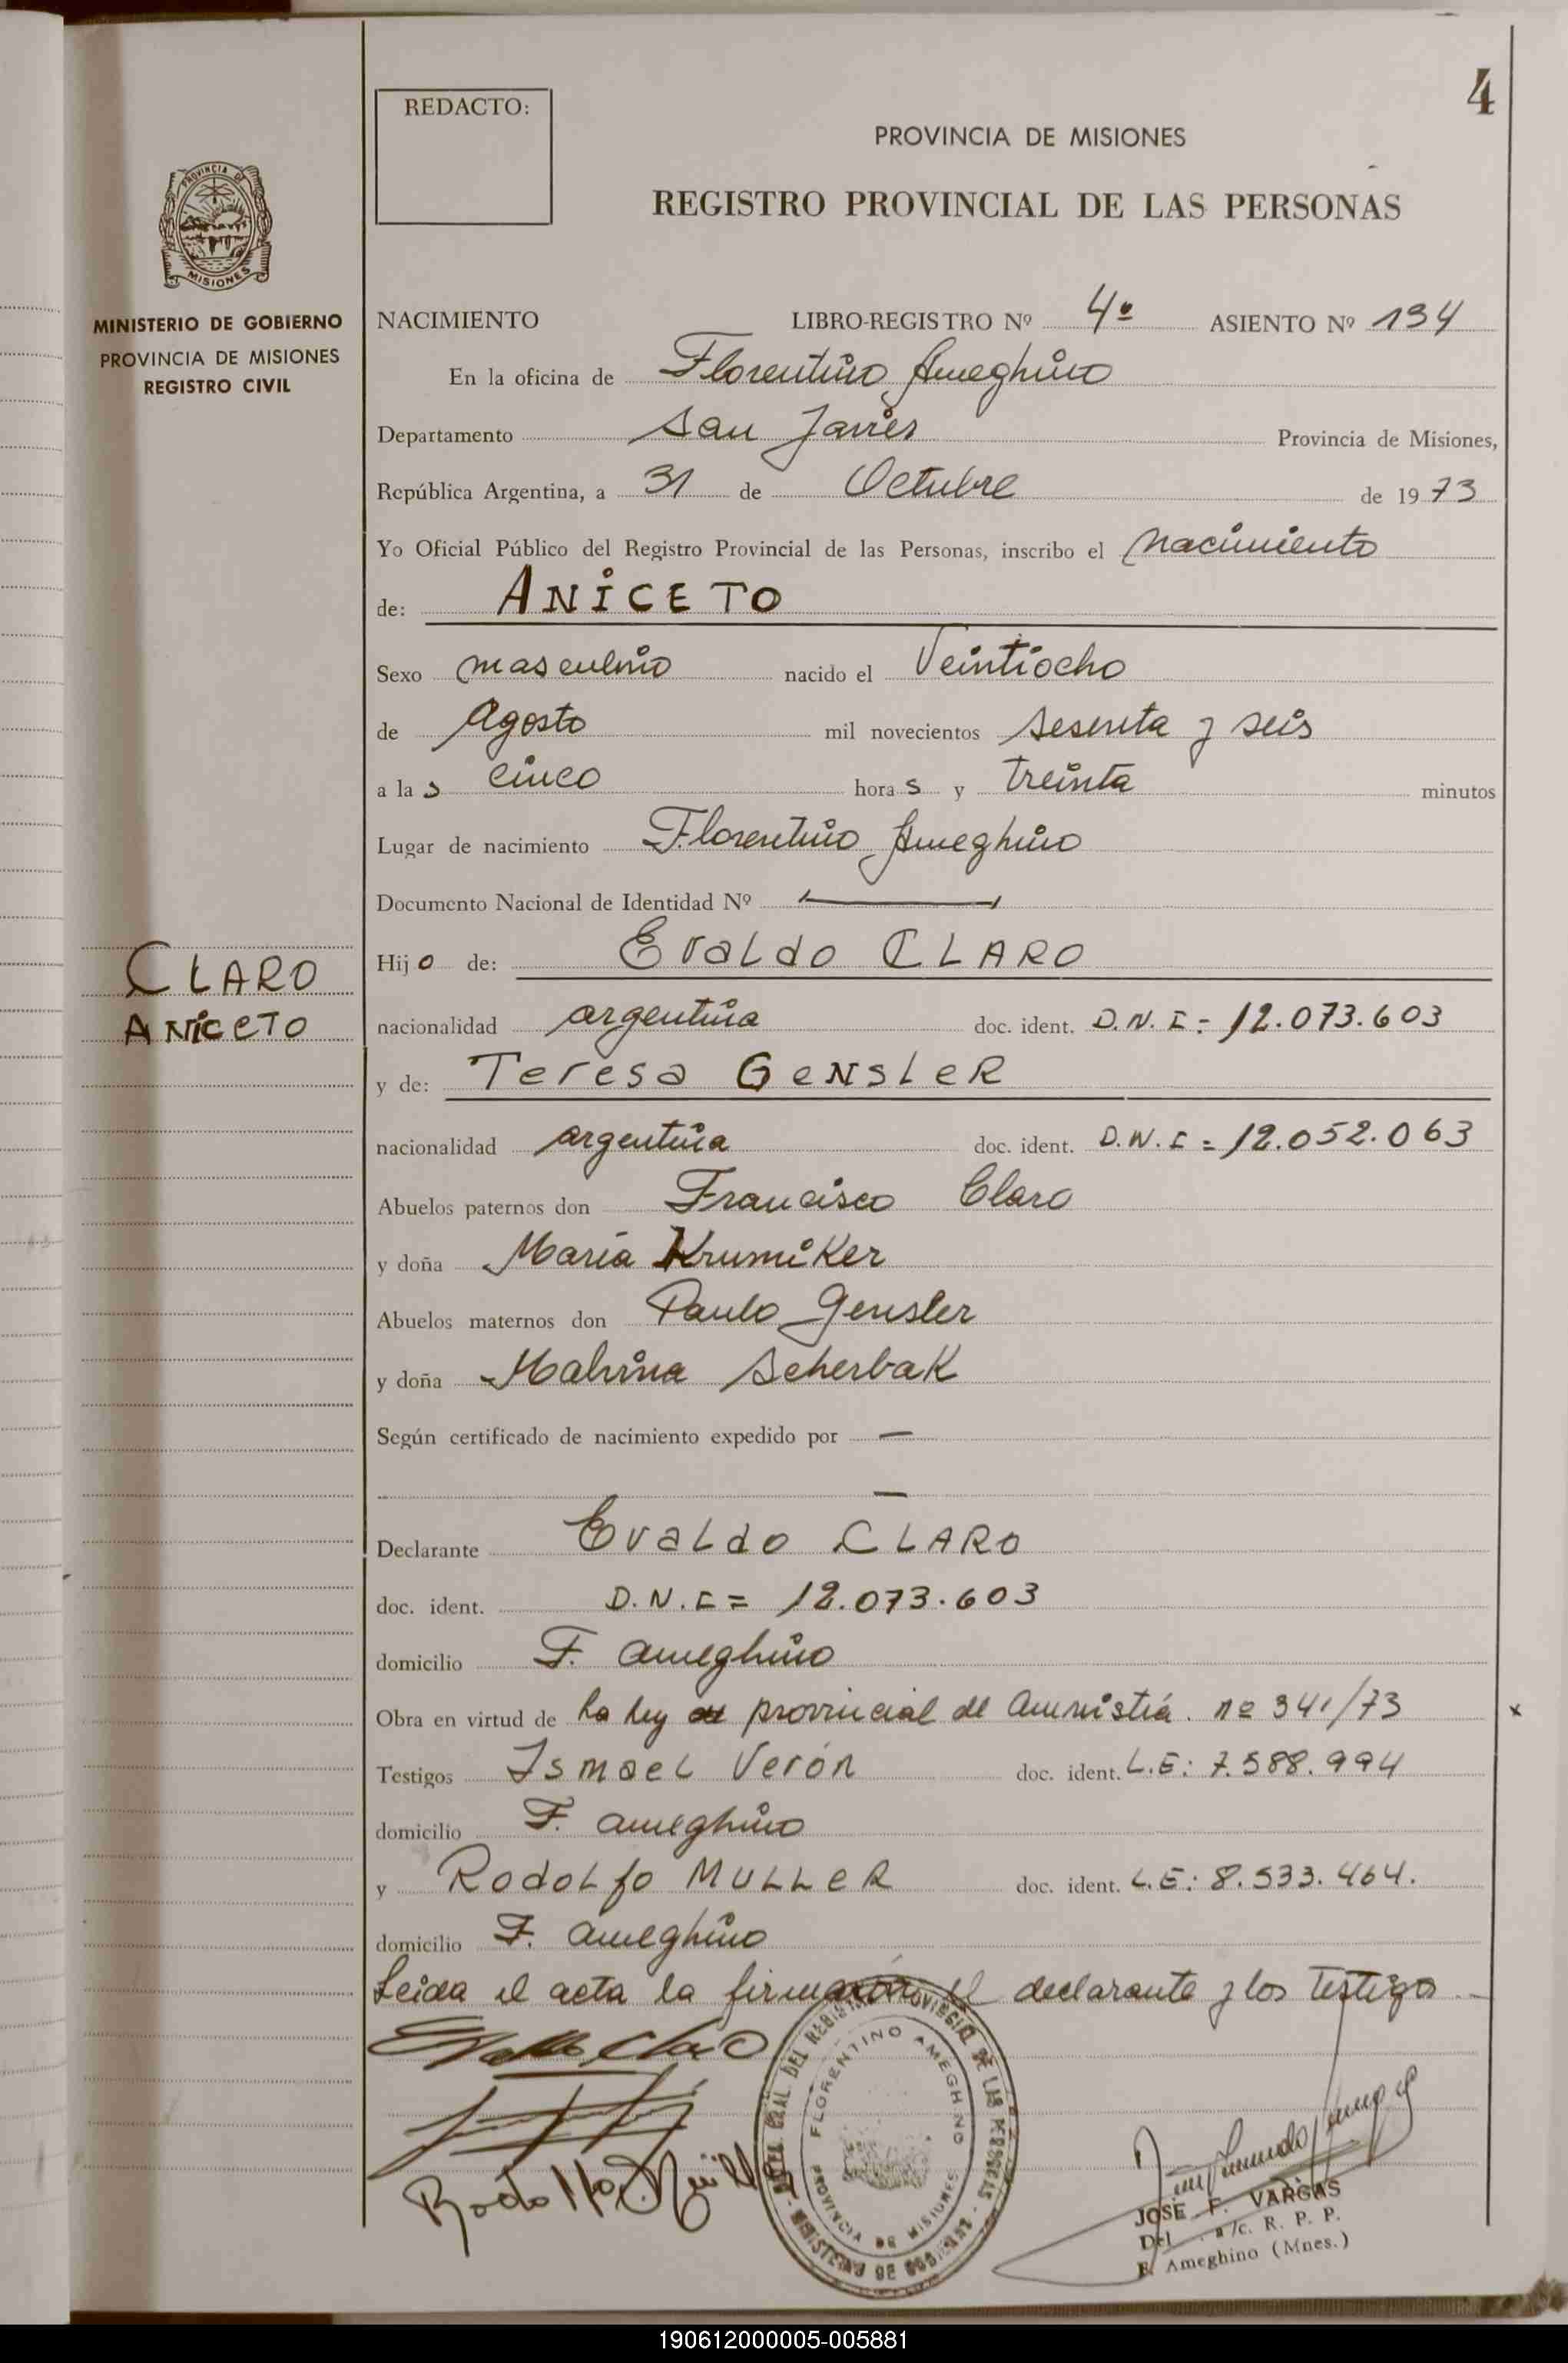 4
REDACTO:
PROVINCIA DE MISIONES
REGISTRO PROVINCIAL DE LAS PERSONAS
PROVINCIA DE
MISIONES
MINISTERIO DE GOBIERNO
PROVINCIA DE MISIONES
REGISTRO CIVIL
NACIMIENTO LIBRO-REGISTRO Nº 4º ASIENTO Nº 134
En la oficina de Florentino Ameghino
Departamento San Javier Provincia de Misiones,
República Argentina, a 31 de Octubre de 1973
Yo Oficial Público del Registro Provincial de las Personas, inscribo el nacimiento
de: ANICETO
Sexo masculino nacido el Veintiocho
de Agosto mil novecientos sesenta y seis
a las cinco horas y treinta minutos
Lugar de nacimiento Florentino Ameghino
Documento Nacional de Identidad Nº —
Hijo de: Evaldo CLARO
CLARO
ANICETO
nacionalidad argentina doc. ident. D.N.I: 12.073.603
y de: Teresa GENSLER
nacionalidad argentina doc. ident. D.N.I = 12.052.063
Abuelos paternos don Francisco Claro
y doña María Krumiker
Abuelos maternos don Paulo Gensler
y doña Malvina Scherbak
Según certificado de nacimiento expedido por —
—
Declarante Evaldo CLARO
doc. ident. D.N.I = 12.073.603
domicilio F. Ameghino
Obra en virtud de la ley provincial de amnistía. nº 341/73 x
Testigos Ismael Verón doc. ident. L.E: 7.588.994
domicilio F. Ameghino
y Rodolfo MULLER doc. ident. L.E: 8.533.464.
domicilio F. Ameghino
Leida el acta la firmaron el declarante y los testigos.—
Evaldo Claro
Rodolfo Müller
DIREC. GRAL. DEL REGISTRO PROVINCIAL DE LAS PERSONAS - MINISTERIO DE GOBIERNO -
FLORENTINO AMEGHINO
PROVINCIA DE MISIONES
JOSE F. VARGAS
Del. a/c. R. P. P.
F. Ameghino (Mnes.)
190612000005-005881